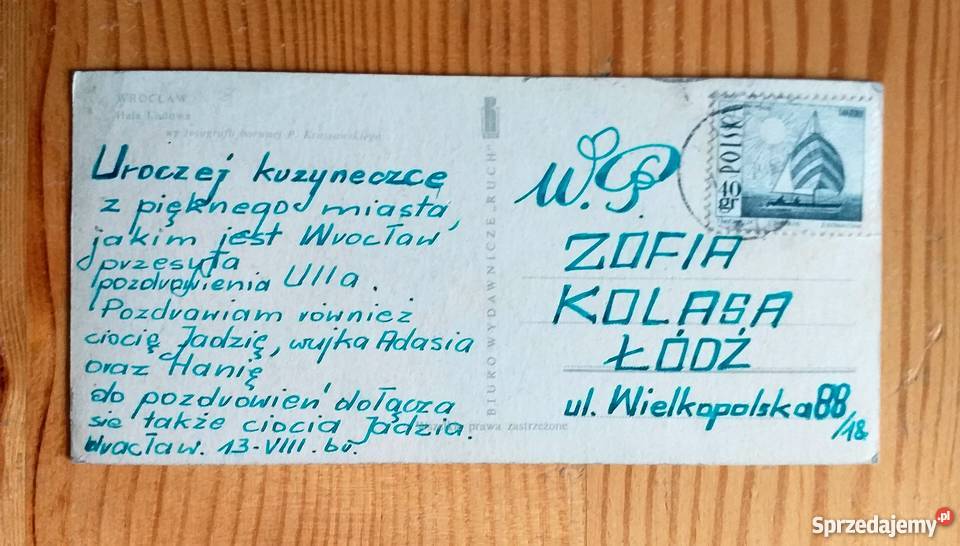 WROCŁAW
Hala Ludowa
wg fotografii barwnej P. Krassowskiego
Uroczej kuzyneczce
z pięknego miasta,
jakim jest Wrocław
przesyła
pozdrowienia Ulla.
Pozdrawiam również
ciocię Jadzię, wujka Adasia
oraz Hanię
do pozdrowień dołącza
się także ciocia Jadzia.
Wrocław. 13-VIII. br.
BIURO WYDAWNICZE „RUCH"
prawa zastrzeżone
POLSKA
40 gr
W.P.
ZOFIA
KOLASA
ŁÓDŹ
ul. Wielkopolska 88
/18
Sprzedajemy.pl